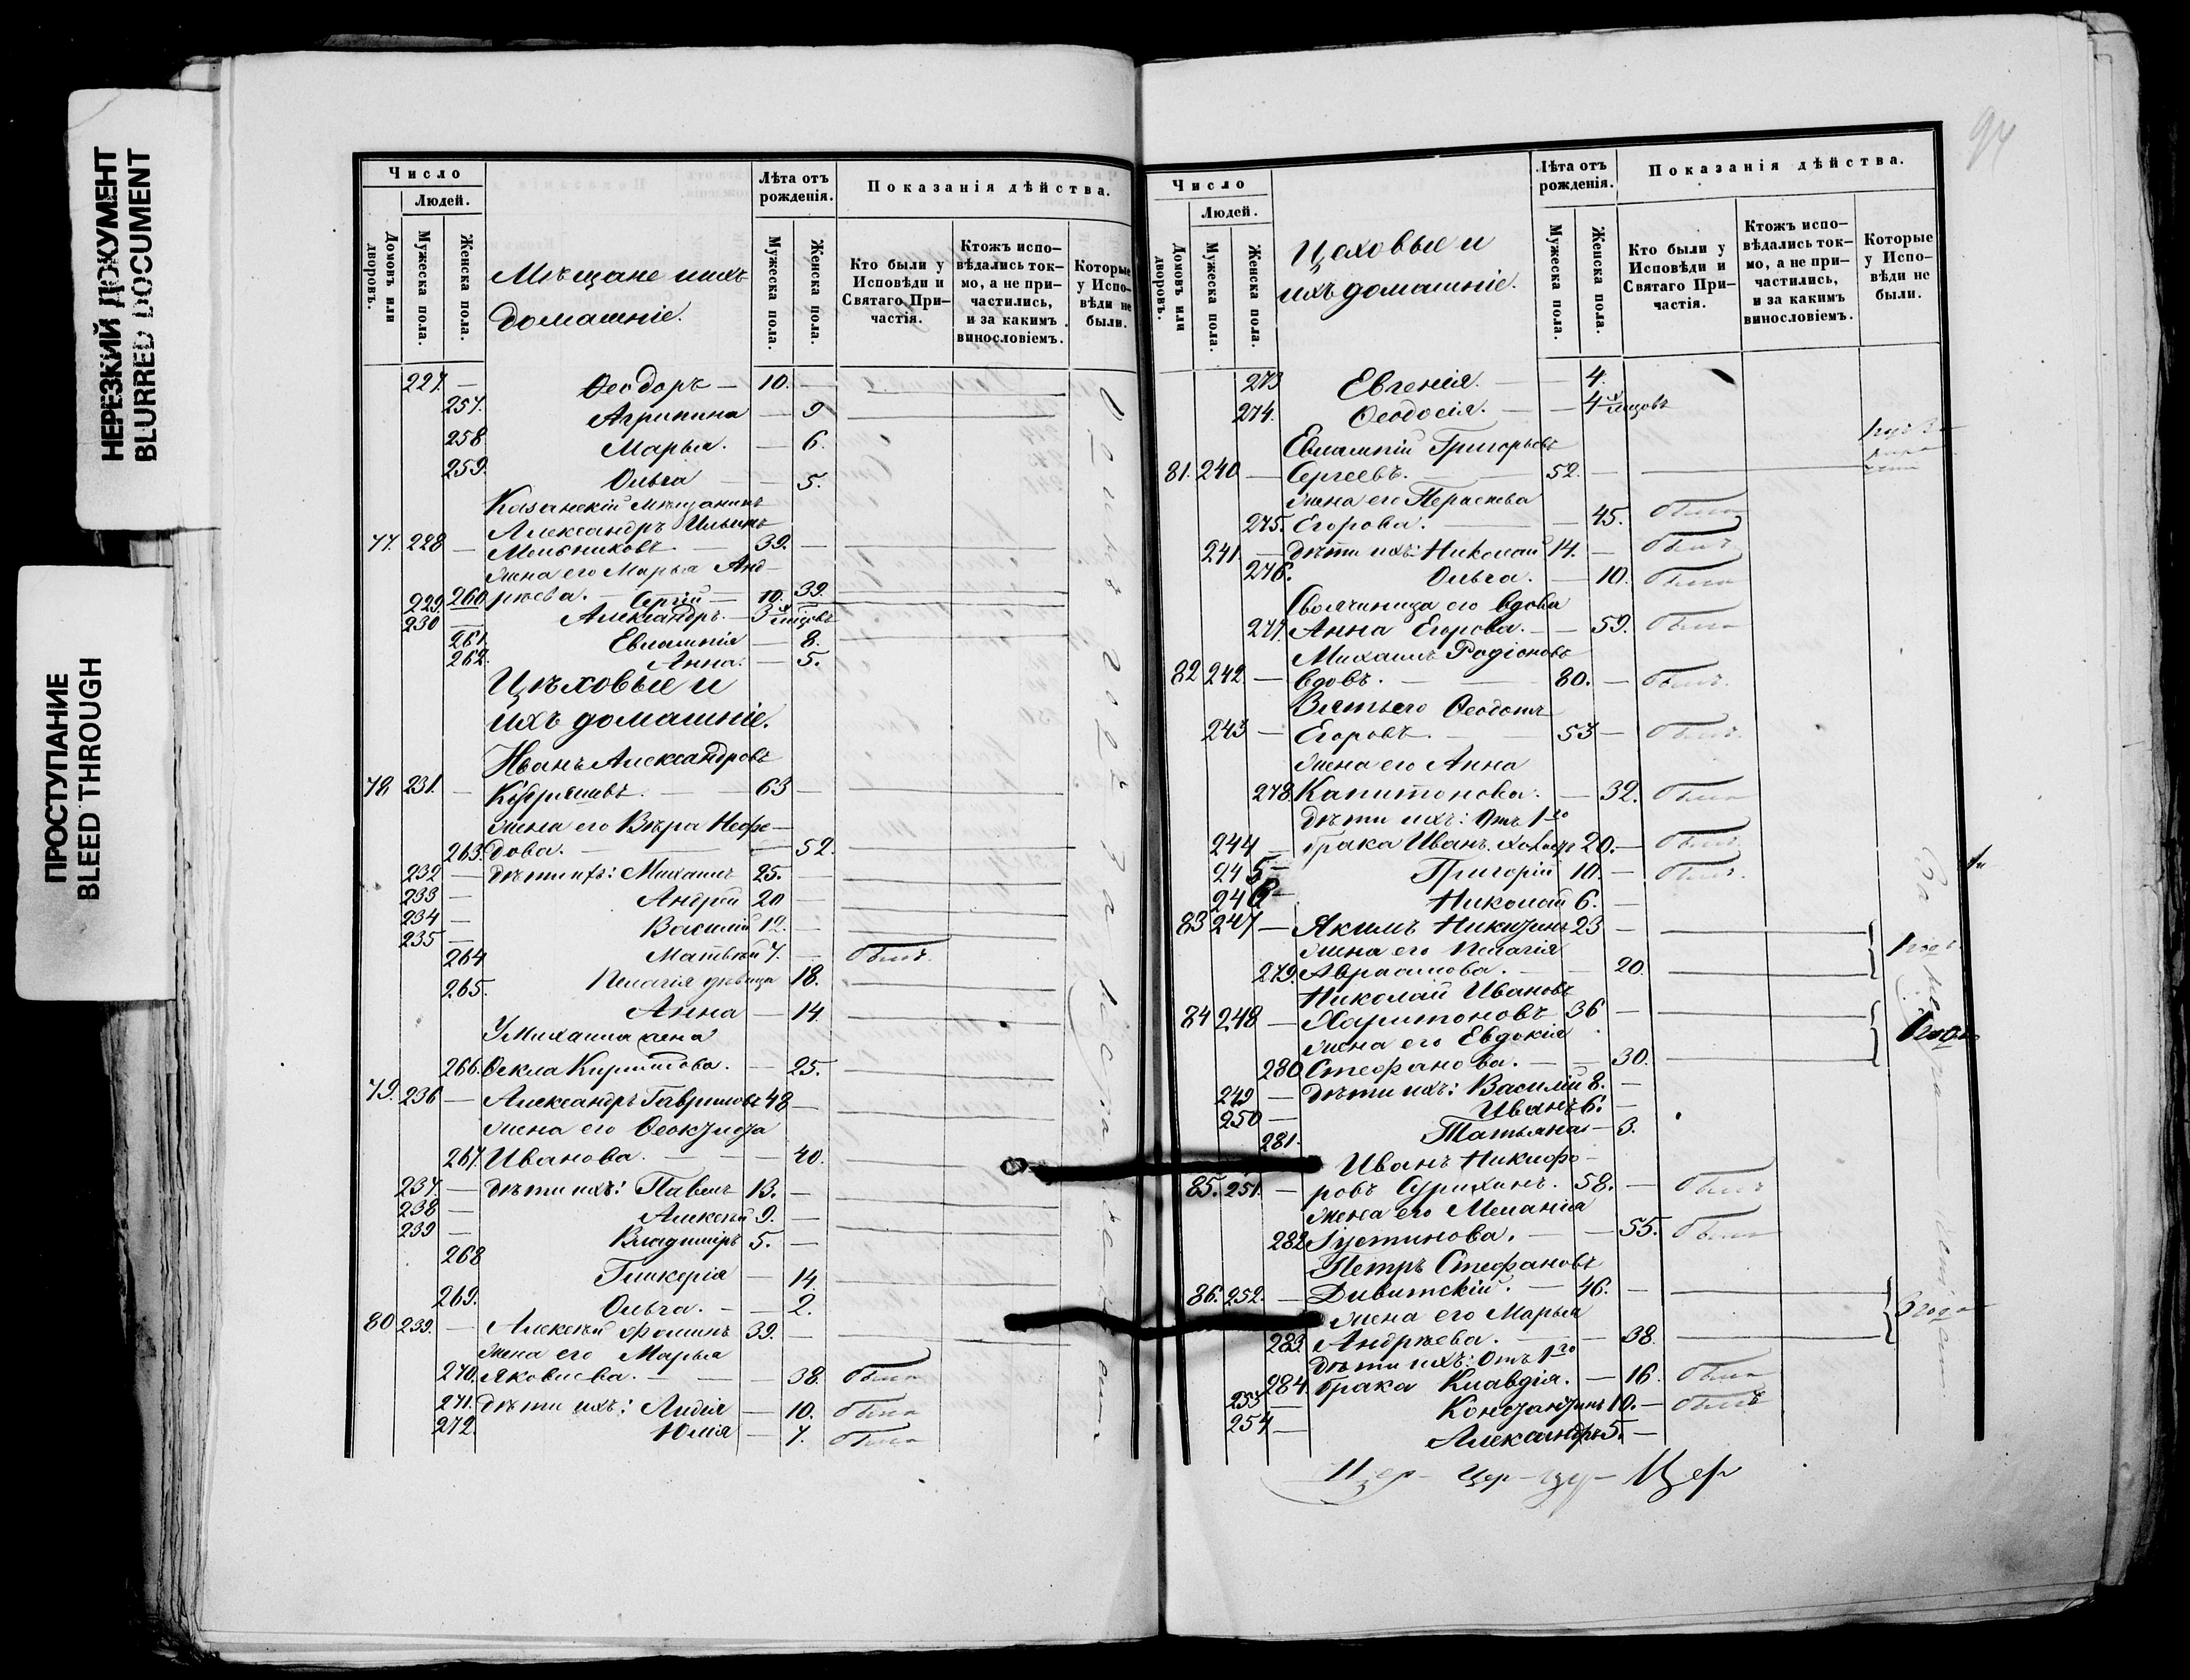 НЕРЕЗКИЙ ДОКУМЕНТ
BLURRED DOCUMENT
ПРОСТУПАНИЕ
BLEED THROUGH
Число
Людей.
Домовъ или дворовъ.
Мужеска пола.
Женска пола.
Мѣщане и ихъ
домашніе.
Лѣта отъ рожденія.
Мужеска пола.
Женска пола.
Показанія дѣйства.
Кто были у Исповѣди и Святаго При-частія.
Ктожъ испо-вѣдались ток-мо, а не при-частились, и за какимъ винословіемъ.
Которые у Испо-вѣди не были.
227. — Ѳеодоръ — 10. —
257. Агрипина — 9
258. Марья. — 6.
259. Ольга — 5.
Казанскій мѣщанинъ
Александръ Ильинъ
77. 228 — Мельниковъ. — 39. —
жена его Марья Анд-
229. 260. рѣева. — Сергій — 10. 39.
230 — Александръ. — 3 мѣсцовъ
261. Евлампія — 8.
262. Анна. — 5.
Цѣховые и
ихъ домашніе.
Иванъ Александровъ
78 231. — 63 —
жена его Вѣра Нефе-
263. дова. — 52.
232 — дѣти ихъ: Михаилъ 25. —
233 — Андрей 20 —
234 — Василій 12. —
235 — Матвѣй 7. — былъ.
264 Пелагія дѣвица 18.
265. Анна — 14.
У Михаила жена
266. Ѳекла Кирилова. — 25.
79. 236 — Александръ Гавриловъ 48 —
жена его Ѳеоктиста
267. Иванова. — 40.
237. — дѣти ихъ: Павелъ 13. —
238 — Алексѣй 9. —
239 — Владиміръ 5. —
268 Гликерія — 14.
269. Ольга. — 2.
80 239. — Алексѣй Ѳоминъ 39. —
жена его Марья
270. Яковлева. — 38. была
271. дѣти ихъ: Лидія — 10. была
272. Юлія — 7. была
94
Число
Людей.
Домовъ или дворовъ.
Мужеска пола.
Женска пола.
Цеховые и
ихъ домашніе.
Лѣта отъ рожденія.
Мужеска пола.
Женска пола.
Показанія дѣйства.
Кто были у Исповѣди и Святаго При-частія.
Ктожъ испо-вѣдались ток-мо, а не при-частились, и за какимъ винословіемъ.
Которые у Испо-вѣди не были.
273 Евгенія. — 4.
274. Ѳеодосія. — 4 мѣсцовъ
Евлампій Григорьевъ
81. 240 — Сергеевъ. — 52. —
жена его Параскева
275. Егорова. — 45. была
241 — дѣти ихъ: Николай 14. — былъ
276. Ольга. — 10. была
Своячиница его вдова
277. Анна Егорова. — 59. была
Михаилъ Родіоновъ
82 242 — вдовъ. — 80. — былъ.
Зять его Ѳеодотъ
243 — Егоровъ. — 53 — былъ.
жена его Анна
278. Капитонова. — 32. была
дѣти ихъ: Отъ 1го
244 — брака Иванъ 20. — былъ
245 — Григорій 10. — былъ.
246 — Николай 6. —
83 247 — Якимъ Никитинъ 23 —
жена его Пелагія
279. Авраамова. — 20.
Николай Ивановъ
84 248 — Харитоновъ 36 —
жена его Евдокія
280 Стефанова. — 30.
249 — дѣти ихъ: Василій 8. —
250 — Иванъ 6. —
281. Татьяна — 3.
Иванъ Никифо-
85. 251. — ровъ Сурихинъ. 58. — былъ
жена его Меланія
282 Іустинова. — 55. была
Петръ Стефановъ
86. 252. — 46. —
жена его Марья
283. Андрѣева. — 38.
дѣти ихъ: Отъ 1го
284. брака Клавдія. — 16. была
253 — Константинъ 10. — былъ
254 — Александръ 5. —
3 года
Цер — Цер — цер — Цер